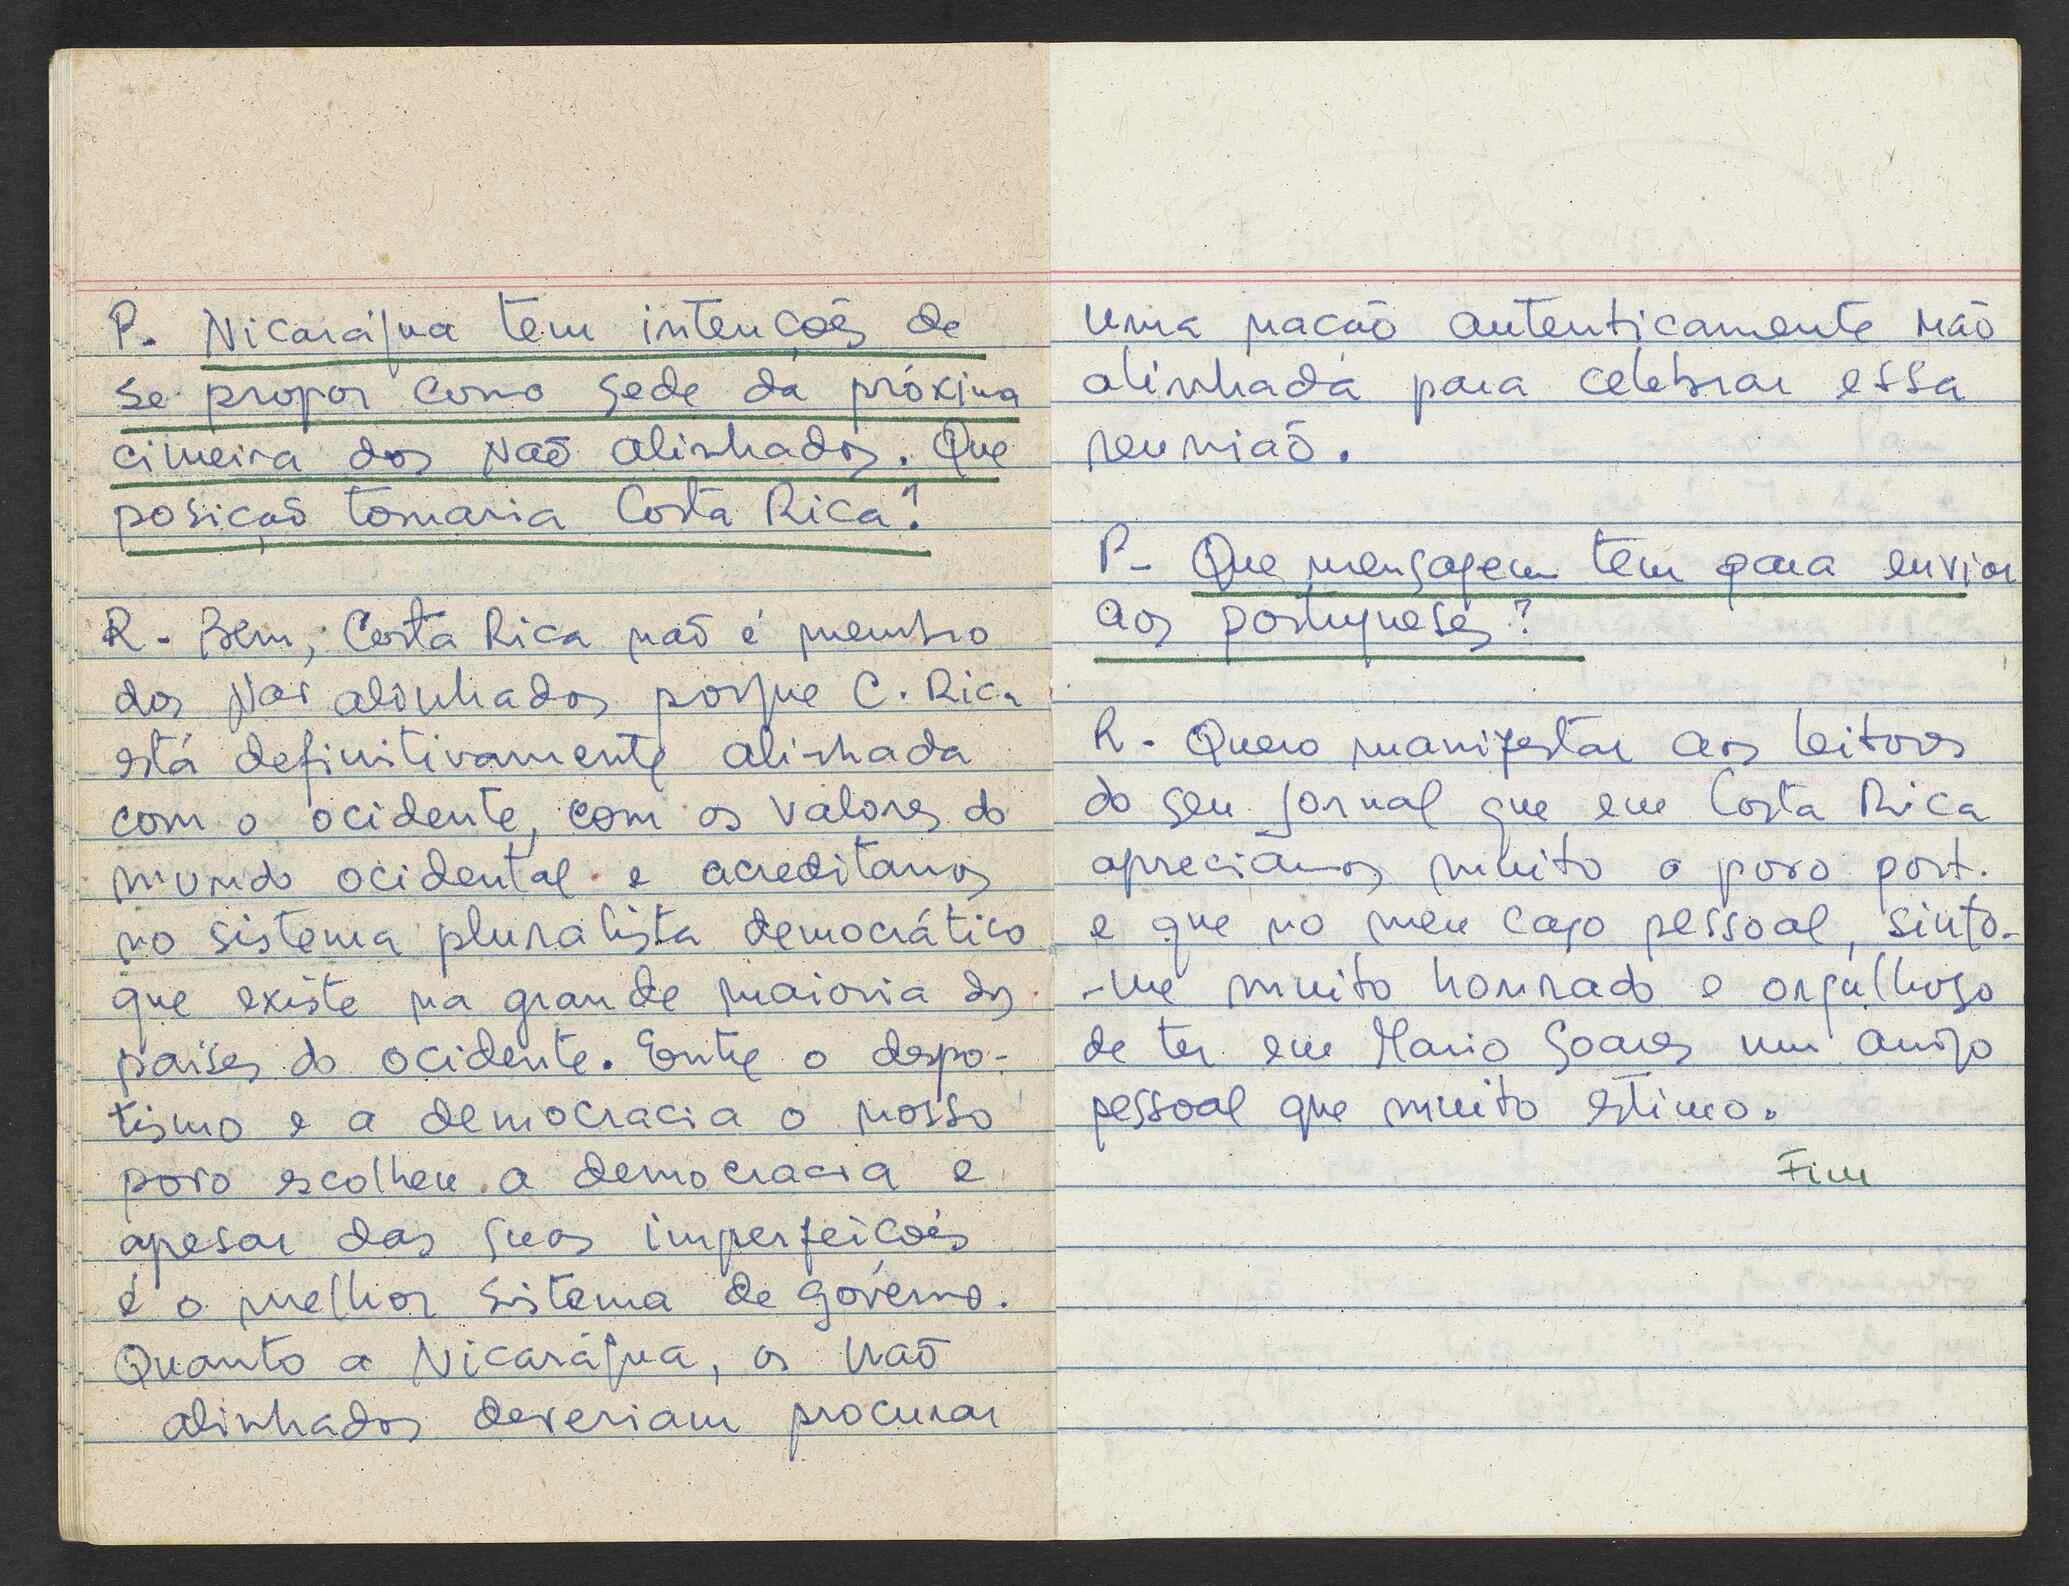 P. Nicarágua tem intenções de
se propor como sede da próxima
cimeira dos Não alinhados. Que
posição tomaria Costa Rica?
R - Bem, Costa Rica não é membro
dos Não alinhados porque C. Rica
está definitivamente alinhada
com o ocidente, com os valores do
mundo ocidental e acreditamos
no sistema pluralista democrático
que existe na grande maioria dos
países do ocidente. Entre o despo-
tismo e a democracia o nosso
povo escolheu a democracia e
apesar das suas imperfeições
é o melhor sistema de govêrno.
Quanto a Nicarágua, os Não
alinhados deveriam procurar
uma nação autenticamente não
alinhada para celebrar essa
reunião.
P - Que mensagem tem para enviar
aos portugueses?
R - Quero manifestar aos leitores
do seu jornal que em Costa Rica
apreciamos muito o povo port.
e que no meu caso pessoal, sinto-
-me muito honrado e orgulhoso
de ter em Mario Soares um amigo
pessoal que muito estimo.
Fim